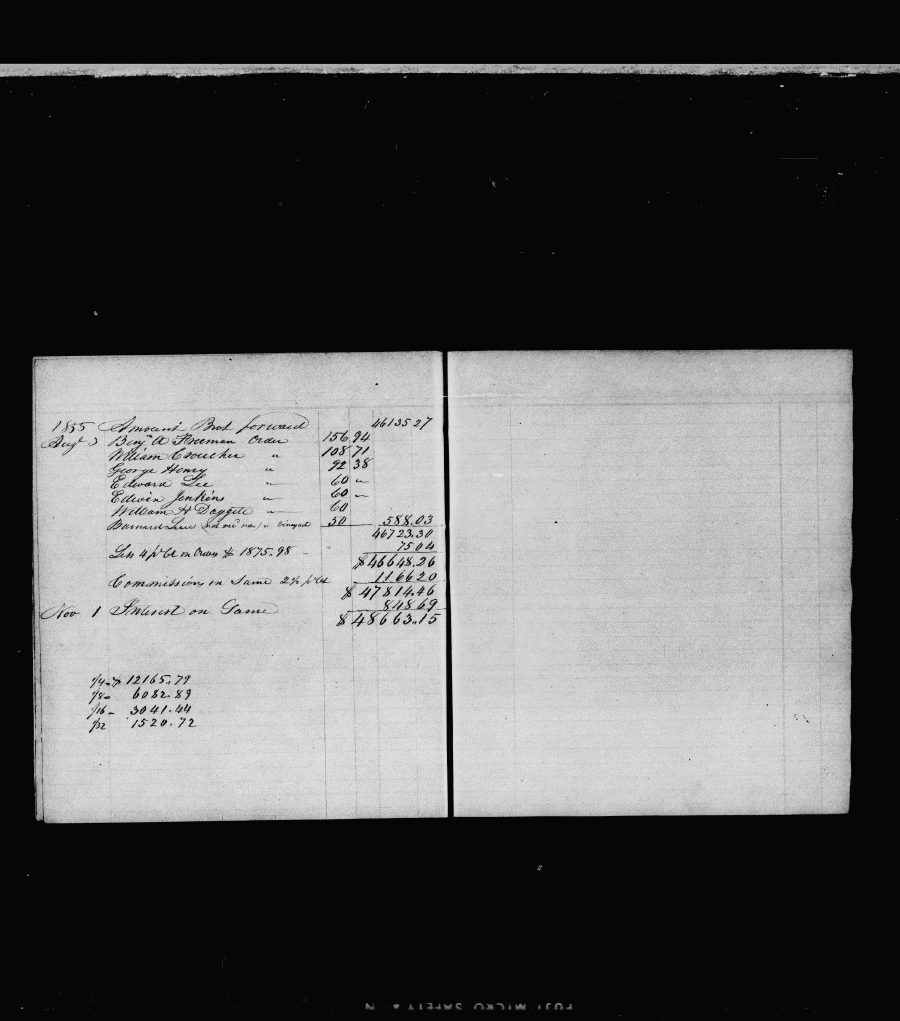 1855 Amount Brot forward 46135 27
Augt 3 Benjn A Freeman Order 156 94
William Croucher " 108 71
George Henry " 92 38
Edward Lee " 60 "
Edwin Jenkins " 60 "
William H Daggett " 60
Barnard Luce 50 588.03
46723.30
Less 4 pr Ct on Orders 1875.98 - 7504
$46648.26
Commissions on Same 2½ pr Ct 116620
$47814.46
Nov 1 Interest on Same 84869
$48663.15
1/4 - $12165.79
1/8 - 6082.89
1/16 - 3041.44
1/32 1520.72
FUJI MICRO SAFETY